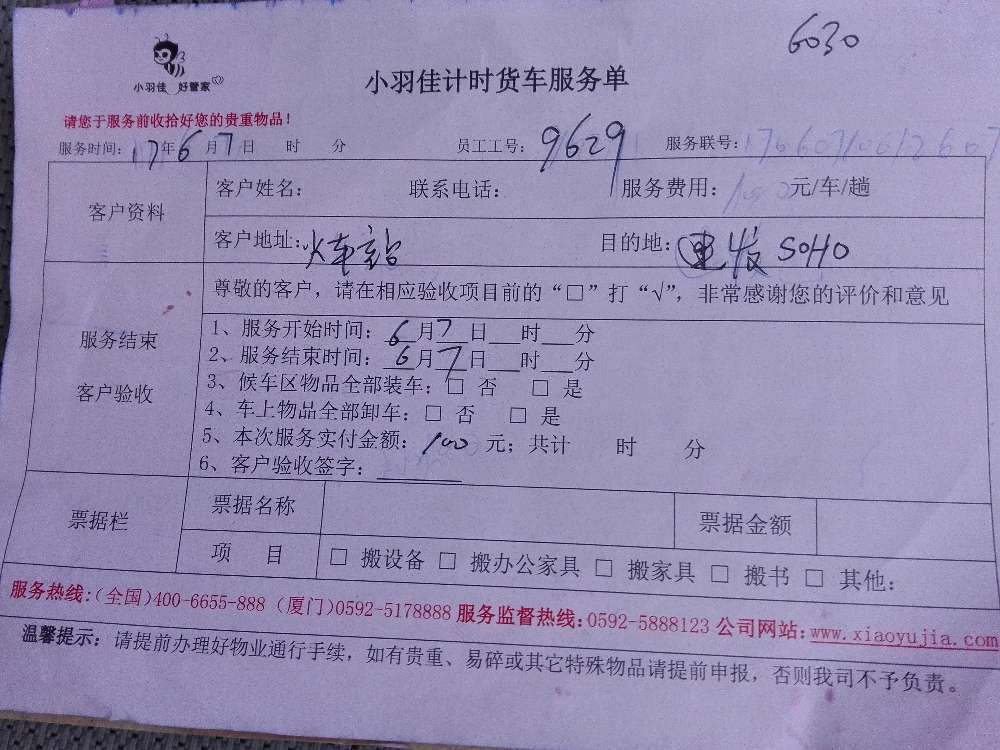 6030
小羽佳 好管家
小羽佳计时货车服务单
请您于服务前收拾好您的贵重物品！
服务时间：17年6月7日 时 分 员工工号：9629 服务联号：
客户资料
客户姓名： 联系电话： 服务费用：100元/车/趟
客户地址：火车站 目的地：建发SOHO
服务结束
客户验收
尊敬的客户，请在相应验收项目前的“□”打“√”，非常感谢您的评价和意见
1、服务开始时间：6月7日___时___分
2、服务结束时间：6月7日___时___分
3、候车区物品全部装车：□ 否 □ 是
4、车上物品全部卸车：□ 否 □ 是
5、本次服务实付金额：100 元；共计 时 分
6、客户验收签字：
票据栏
票据名称 票据金额
项 目 □ 搬设备 □ 搬办公家具 □ 搬家具 □ 搬书 □ 其他：
服务热线：（全国）400-6655-888（厦门）0592-5178888 服务监督热线：0592-5888123 公司网站：www.xiaoyujia.com
温馨提示：请提前办理好物业通行手续，如有贵重、易碎或其它特殊物品请提前申报，否则我司不予负责。